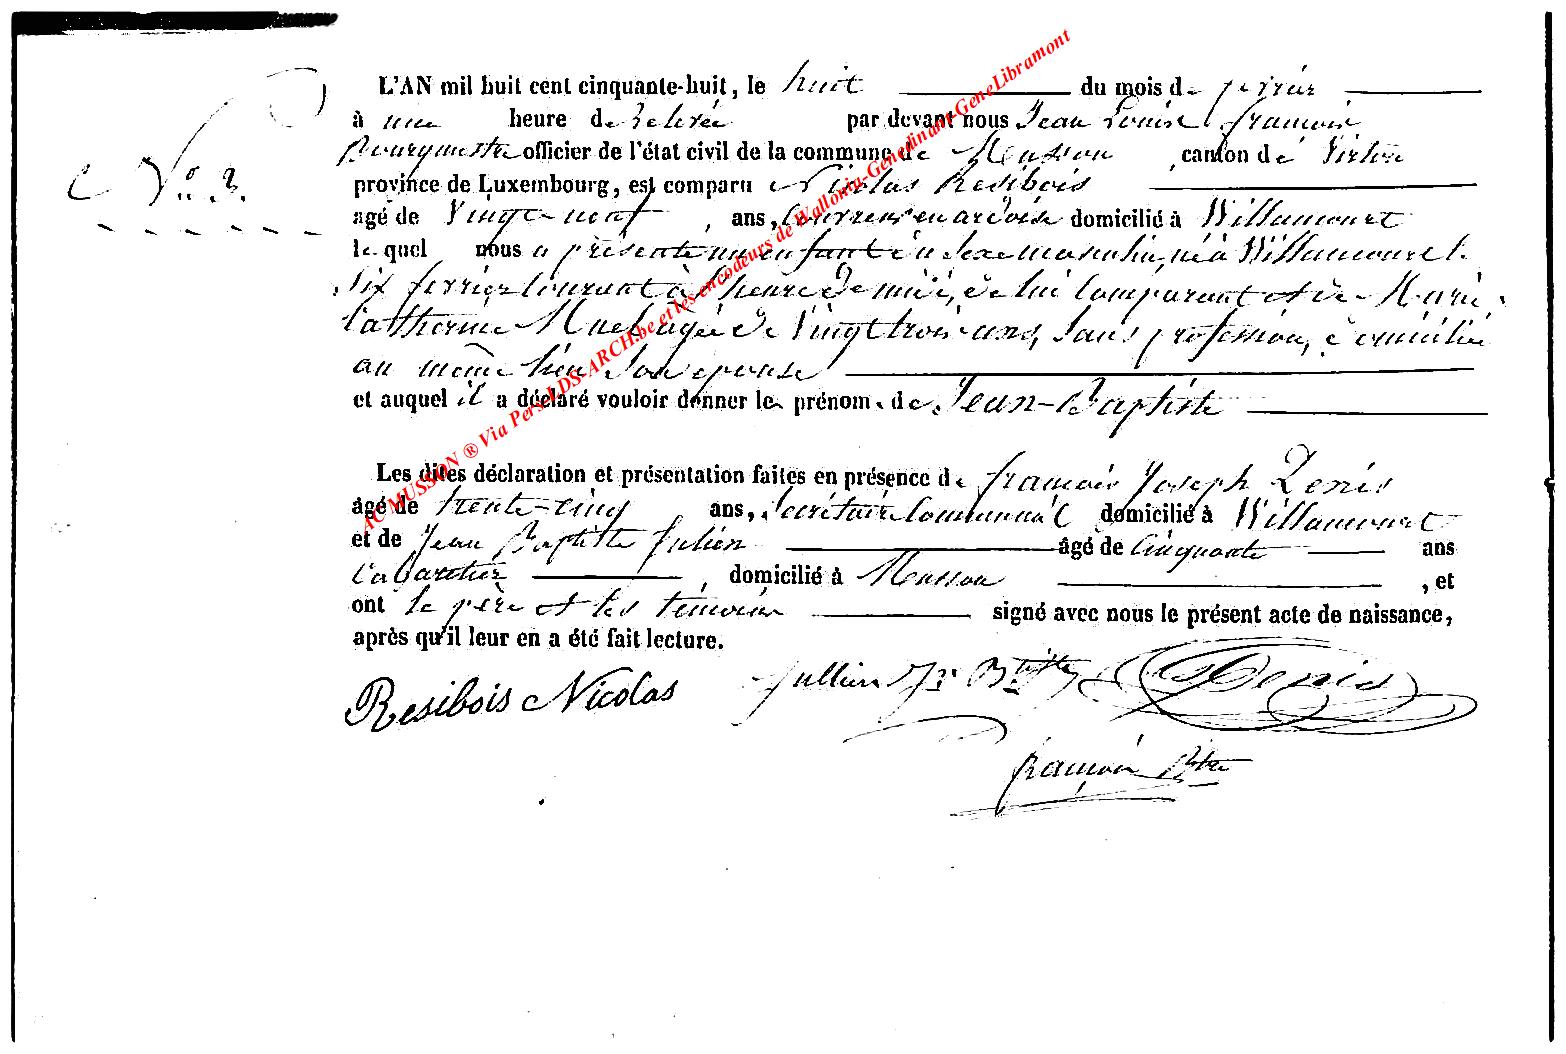 L'AN mil huit cent cinquante-huit, le huit du mois de fevrier
à une heure de Relevée par devant nous Jean Louis françois
Bourgmestre officier de l'état civil de la commune de Musson, canton de Virton
province de Luxembourg, est comparu Nicolas Resibois
agé de Vingt-neuf, ans, Couvreur en ardoise domicilié à Willancourt
le quel nous a présenté un enfant du Sexe masculin, né à Willancourt le
Six fevrier courant à heure de midi, de lui Comparant et de Marie
Catherine agée de Vingt trois ans, Sans profession, domiciliée
au même lieu Son épouse
et auquel il a déclaré vouloir donner le prénom de Jean-Baptiste
Les dites déclaration et présentation faites en présence de françois Joseph Denis
âgé de trente-cinq ans, Secrétaire Communal domicilié à Willancourt
et de Jean Baptiste Julien âgé de Cinquante ans
Cabaretier, domicilié à Musson, et
ont le père et les témoins signé avec nous le présent acte de naissance,
après qu'il leur en a été fait lecture.
Resibois Nicolas Jullien Jn Btiste Denis
françois Btre
No 3.
AC MUSSON ® Via Pers-LDS-ARCH.be et les encodeurs de Wallonia-Genedinant-GeneLibramont